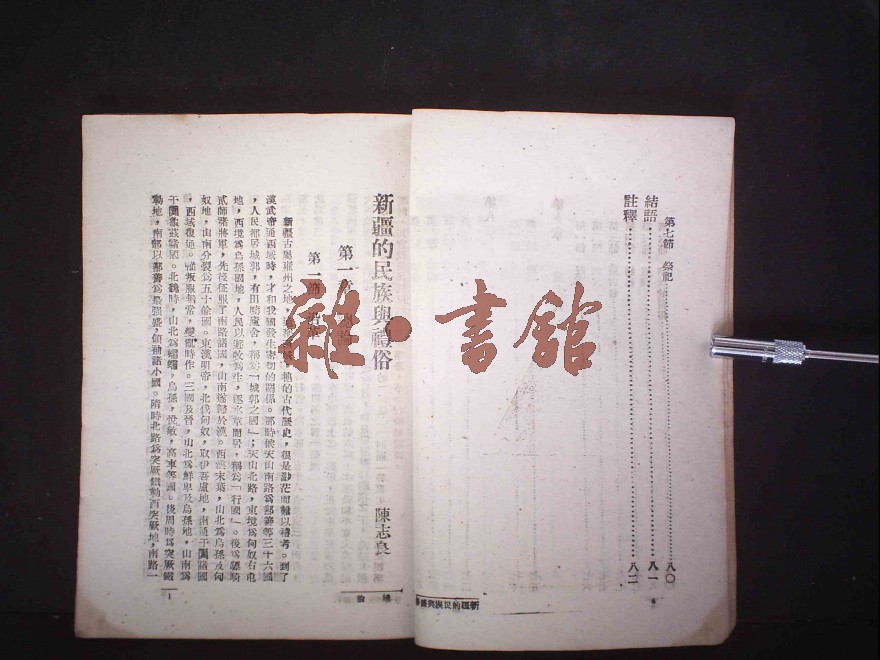 第七節 祭祀……八〇
結語……八一
註釋……八二
新疆的民族與禮俗
新疆的民族與禮俗
陳志良
第一章
第一節 沿革
新疆古屬雍州之地,
的古代歷史,很是渺茫而難以稽考。到了
漢武帝通西域時,才和我國發生密切的關係。那時候天山南路為鄯善等三十六國
,人民都居城郭,有田疇廬舍,稱為「城郭之國」;天山北路,東境為匈奴右屯
地,西境為烏孫國地,人民以遊牧為生,逐水草而居,稱為「行國」。後為驃騎
貳師諸將軍,先後征服了南路諸國,山南遂歸於漢。西漢末葉,山北為烏孫及匈
奴地,山南分裂為五十餘國。東漢明帝,北伐匈奴,取伊吾盧地,南通于闐諸國
,西域復通。後叛服無常,變亂時作。三國及晉,山北為鮮卑及烏孫地,山南為
于闐龜茲諸國。北魏時,山北為蠕蠕,烏孫,悅般,高車等國。後周時為突厥鐵
勒地,南部以鄯善為最強盛,領袖諸小國。隋時北路為突厥鐵勒西突厥地,南路一
緒論
1
雜·書館